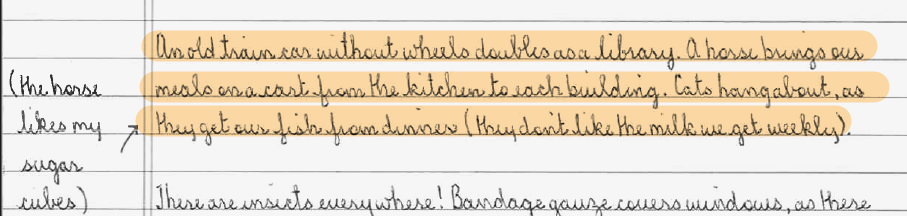 An old train car without wheels doubles as a library. A horse brings our
(the horse
meals on a cart from the kitchen to each building. Cats hang about, as
likes my
they get our fish from dinner (they don't like the milk we get weekly).
sugar
cubes)
There are insects everywhere! Bandage gauze covers windows, as there